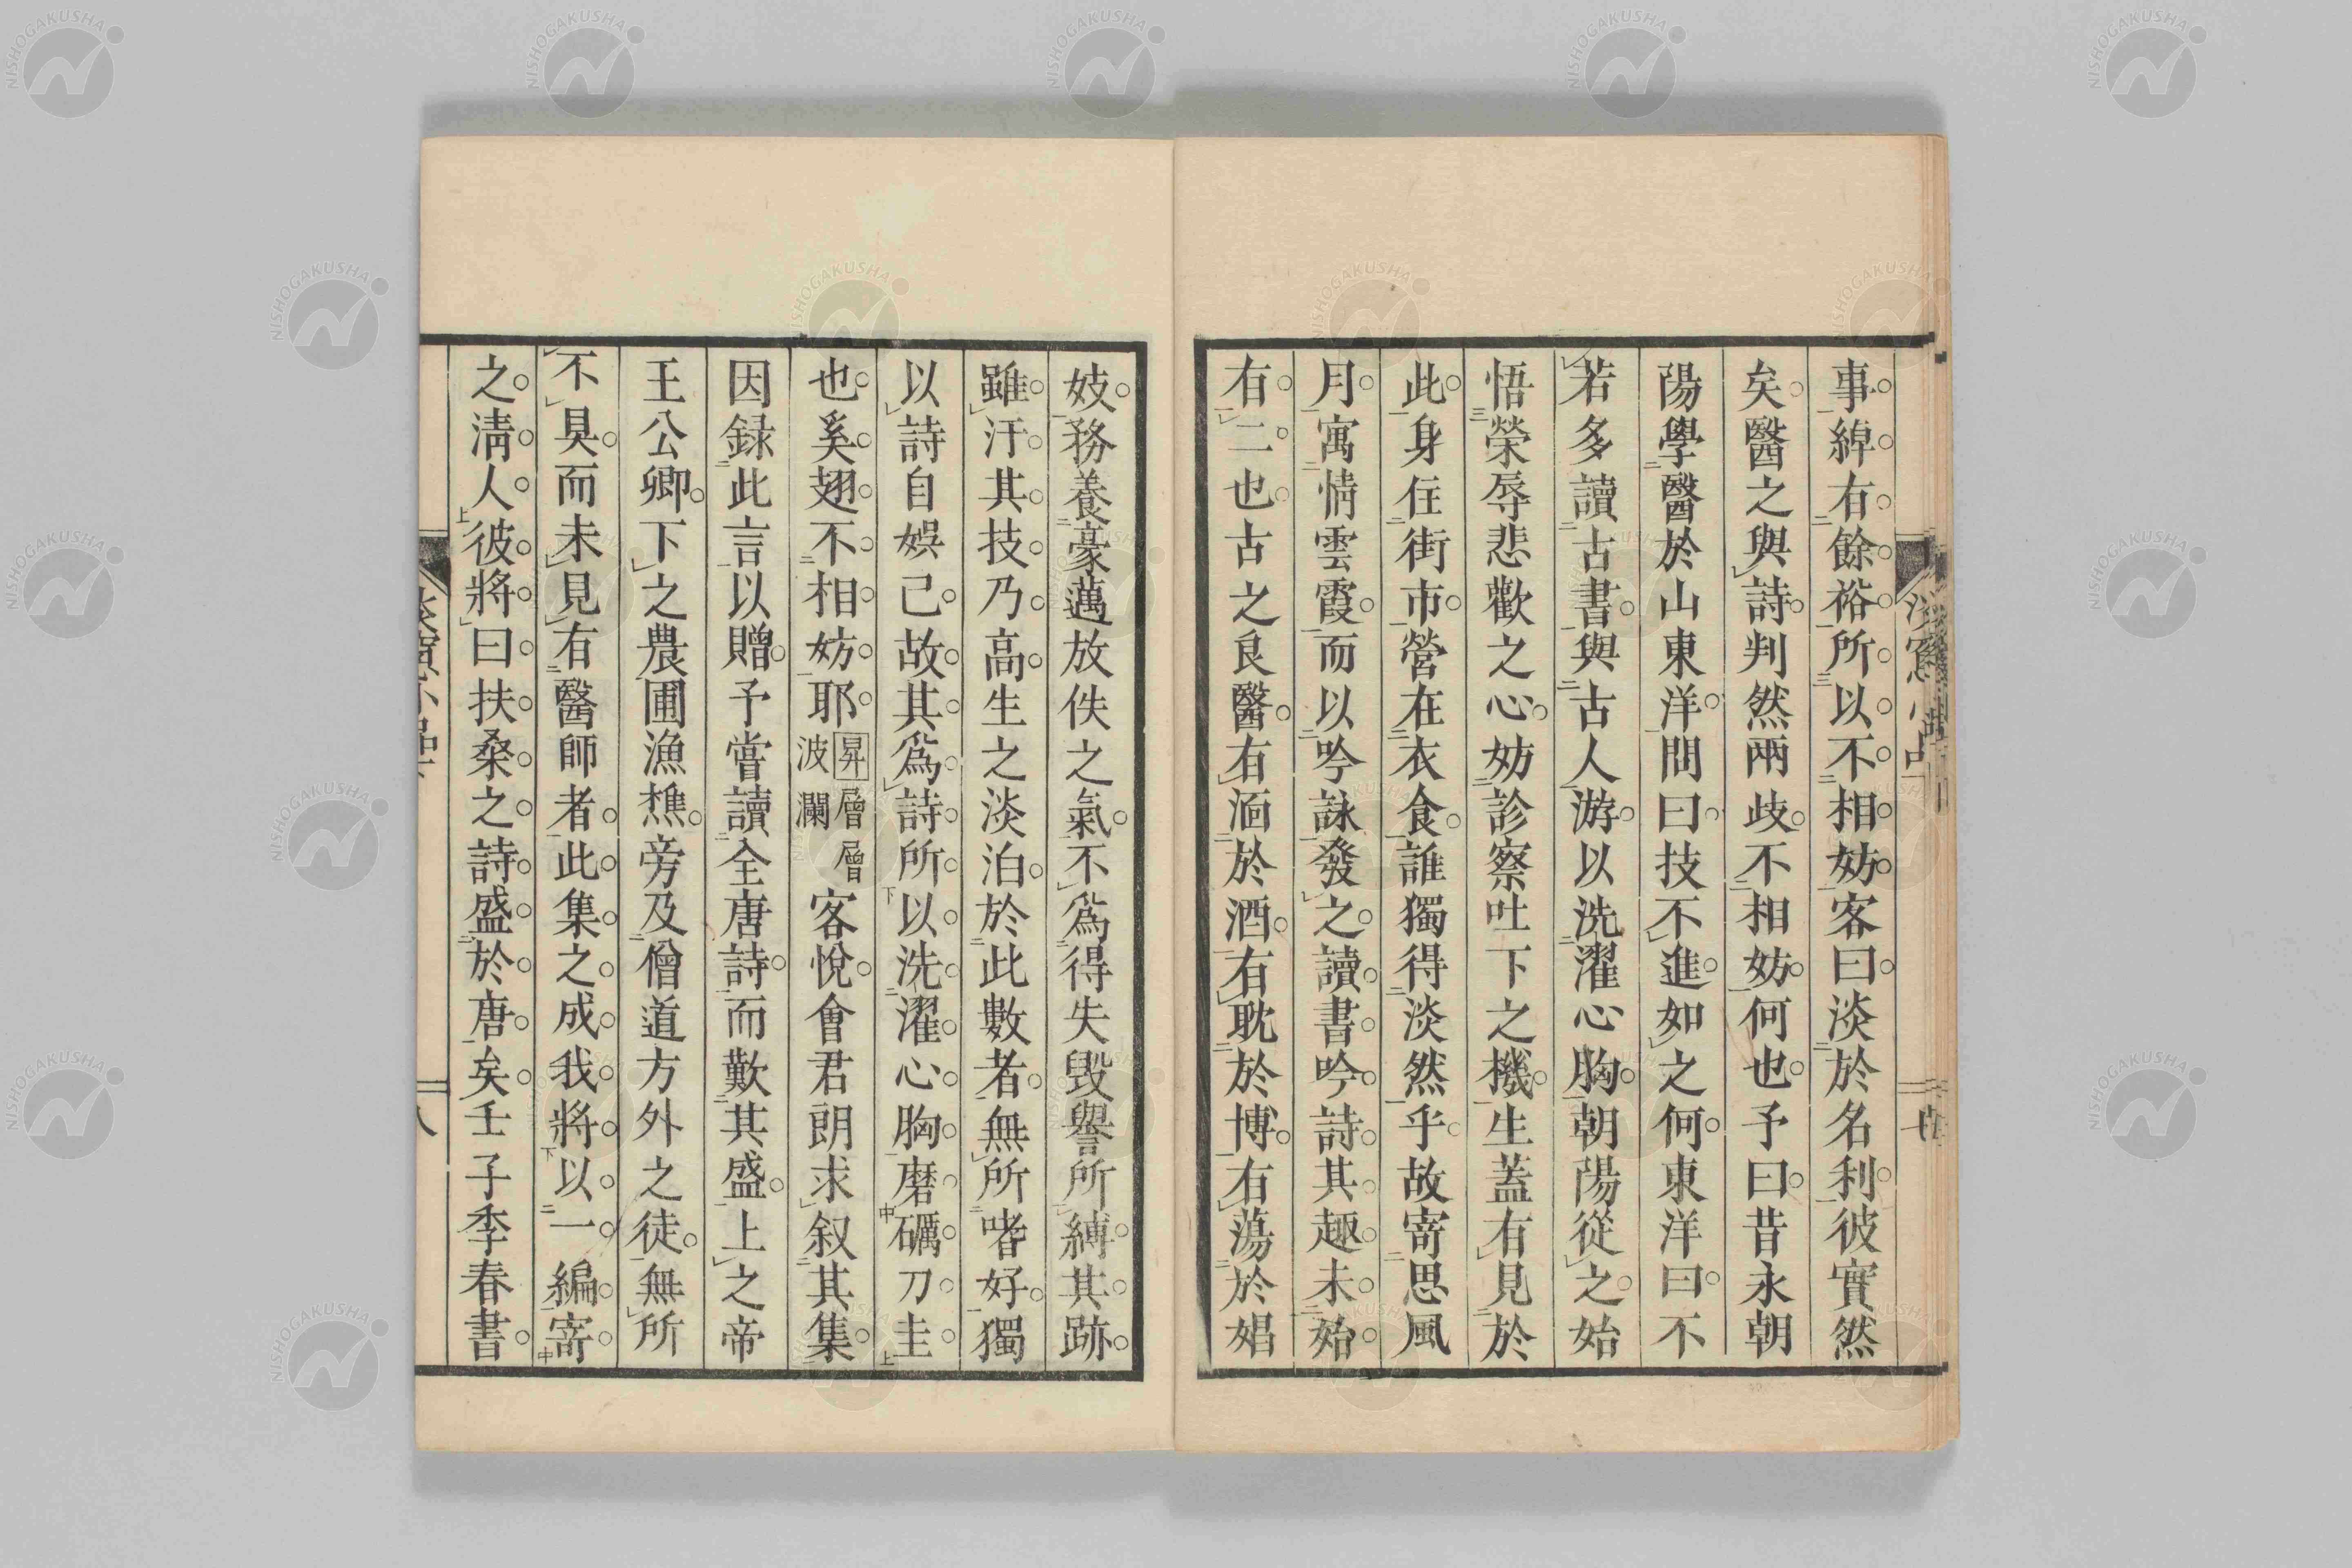 事綽有餘裕所以不相妨客曰淡於名利彼實然
矣醫之與詩判然兩歧不相妨何也予曰昔永朝
陽學醫於山東洋問曰技不進如之何東洋曰不
若多讀古書與古人游以洗濯心胸朝陽從之始
悟榮辱悲歡之心妨診察吐下之機生蓋有見於
此身住街市營在衣食誰獨得淡然乎故寄思風
月寓情雲霞而以吟詠發之讀書吟詩其趣未始
有二也古之良醫有湎於酒有耽於博有蕩於娼
七
妓務養豪邁放佚之氣不爲得失毀譽所縛其跡
雖汙其技乃高生之淡泊於此數者無所嗜好獨
以詩自娛己故其爲詩所以洗濯心胸磨礪刀圭
也奚翅不相妨耶昇層層波瀾客悅會君朗求叙其集
因録此言以贈予嘗讀全唐詩而歎其盛上之帝
王公卿下之農圃漁樵旁及僧道方外之徒無所
不具而未見有醫師者此集之成我將以一編寄
之淸人彼將曰扶桑之詩盛於唐矣壬子季春書
八
NISHOGAKUSHA